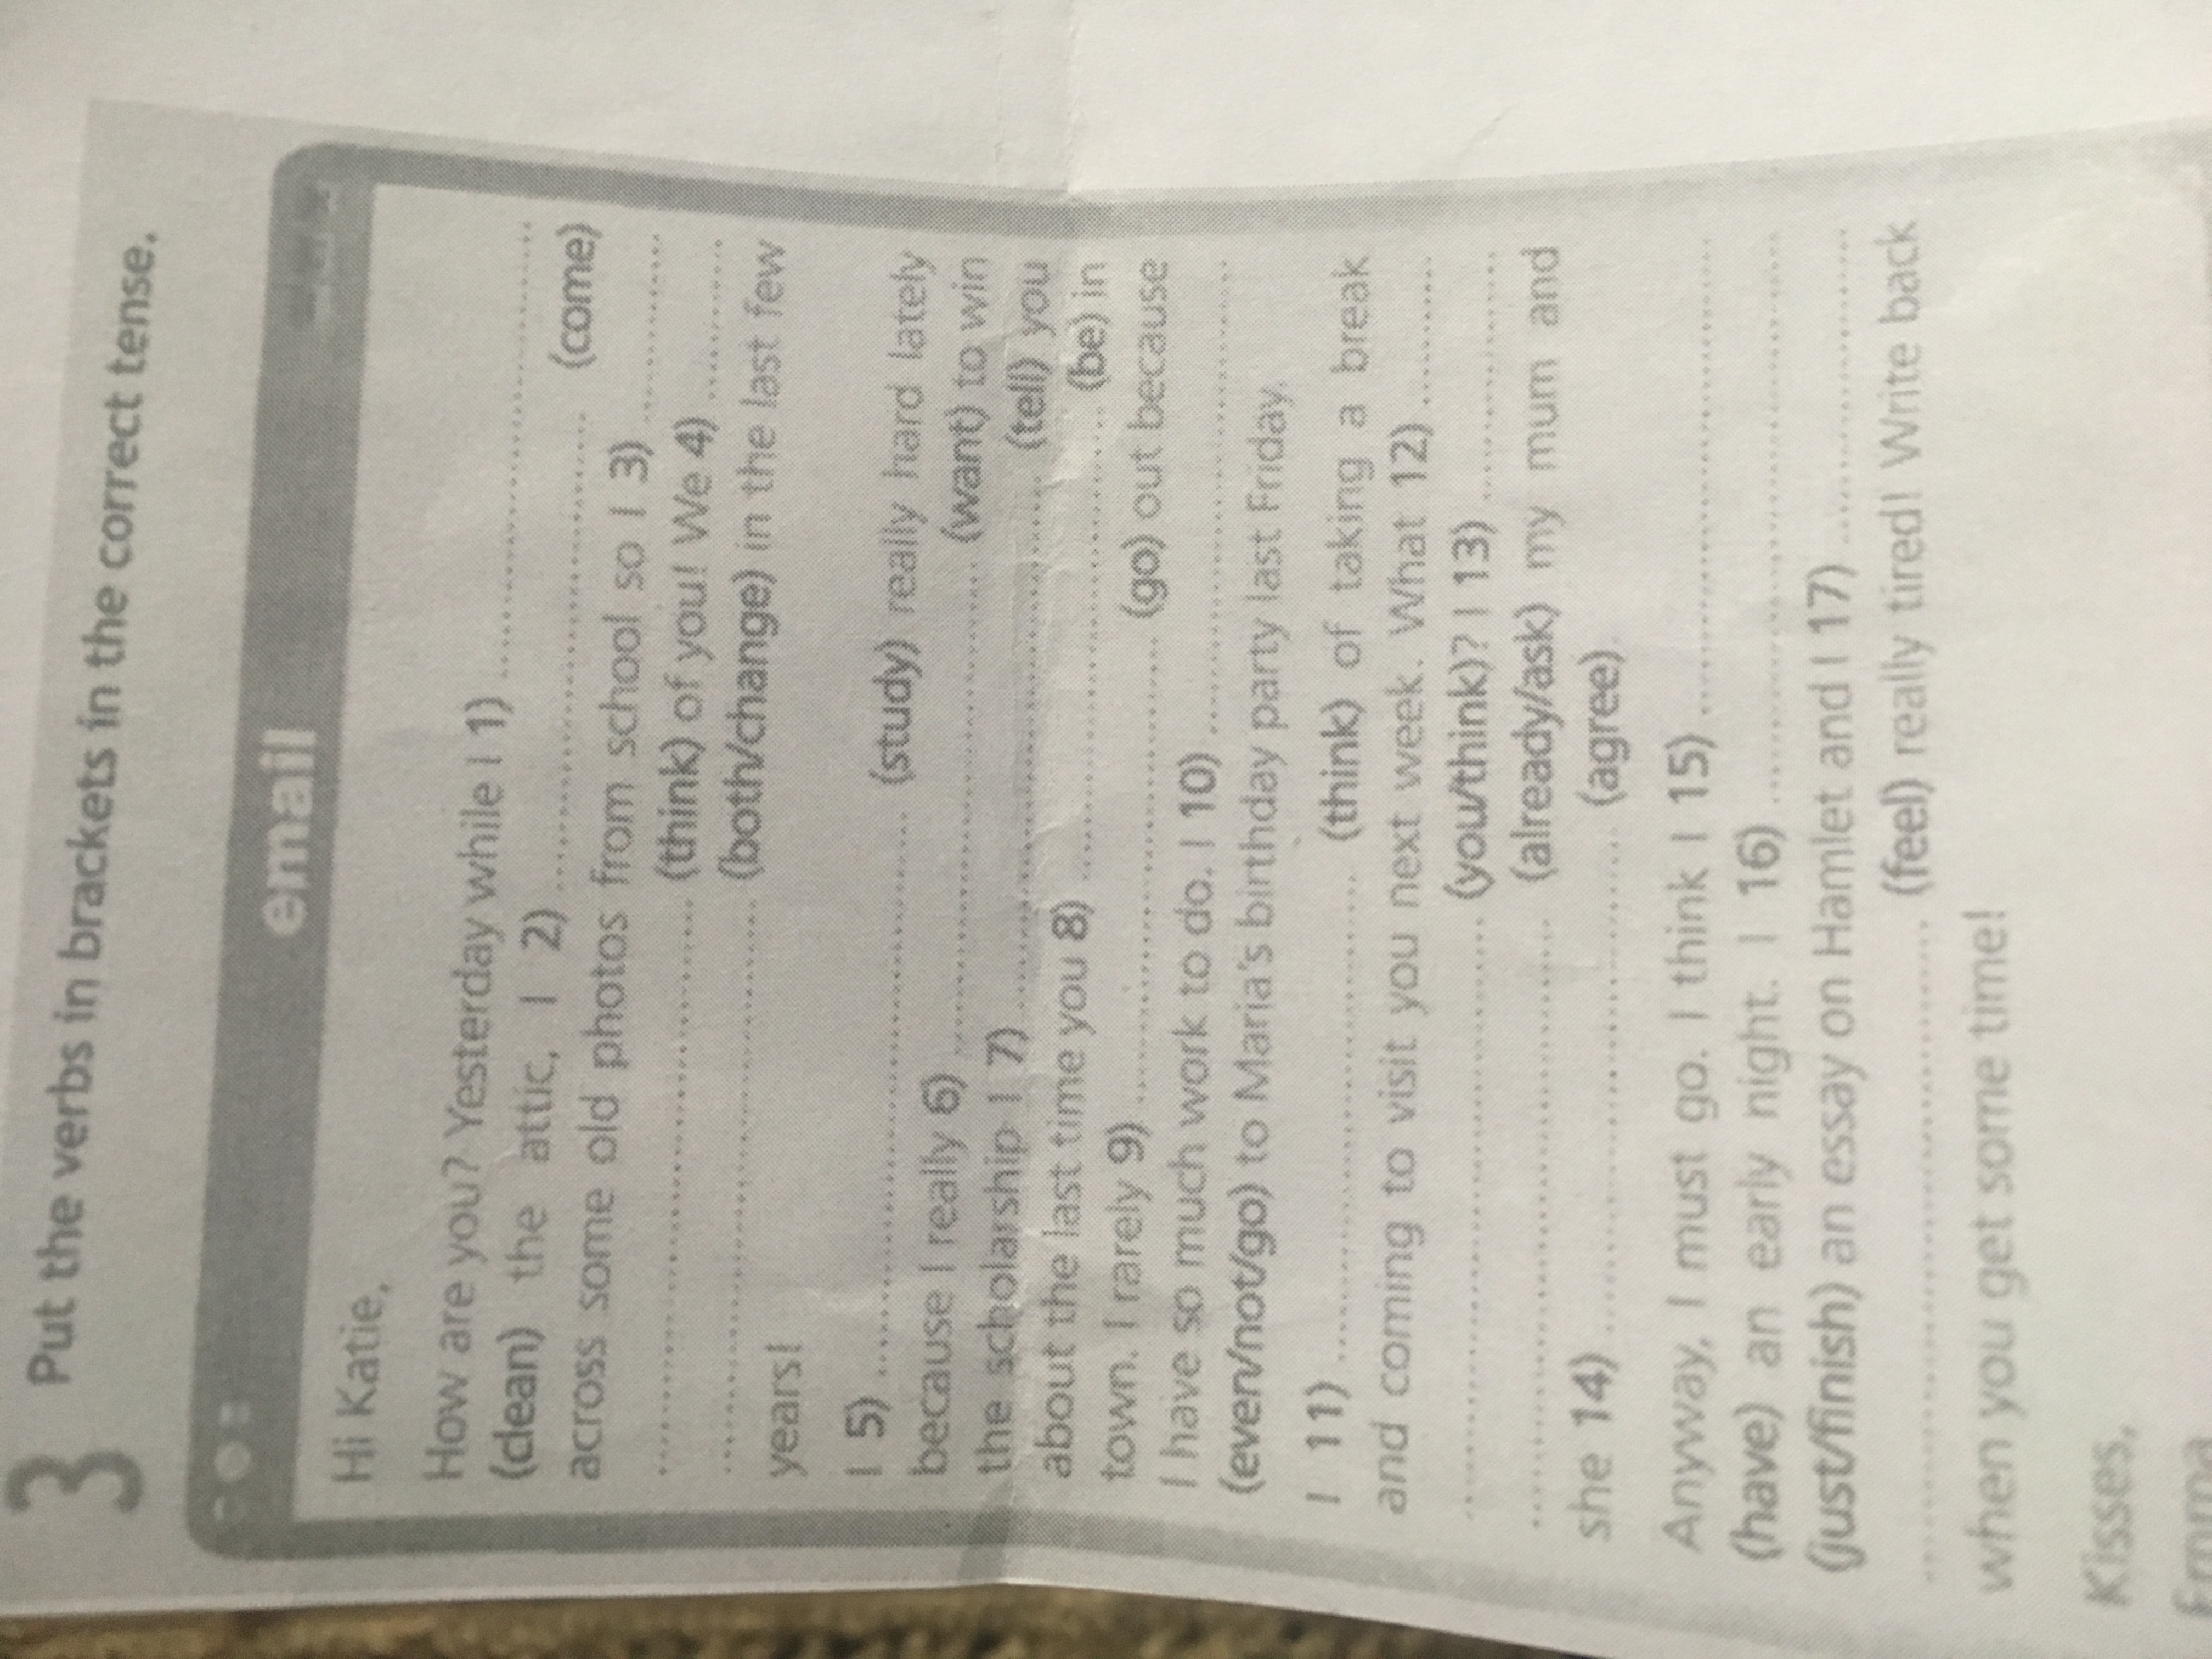 3 Put the verbs in brackets in the correct tense.
email
Hi Katie,
How are you? Yesterday while I 1) ....................
(clean) the attic, I 2) .................... (come)
across some old photos from school so I 3) ..........
.................... (think) of you! We 4) ..........
.................... (both/change) in the last few
years!
I 5) .................... (study) really hard lately
because I really 6) .................... (want) to win
the scholarship I 7) .................... (tell) you
about the last time you 8) .................... (be) in
town. I rarely 9) .................... (go) out because
I have so much work to do. I 10) ....................
(even/not/go) to Maria's birthday party last Friday.
I 11) .................... (think) of taking a break
and coming to visit you next week. What 12) ..........
.................... (you/think)? I 13) ..........
.................... (already/ask) my mum and
she 14) .................... (agree).
Anyway, I must go. I think I 15) ....................
(have) an early night. I 16) ....................
(just/finish) an essay on Hamlet and I 17) ..........
.................... (feel) really tired! Write back
when you get some time!
Kisses,
Emma